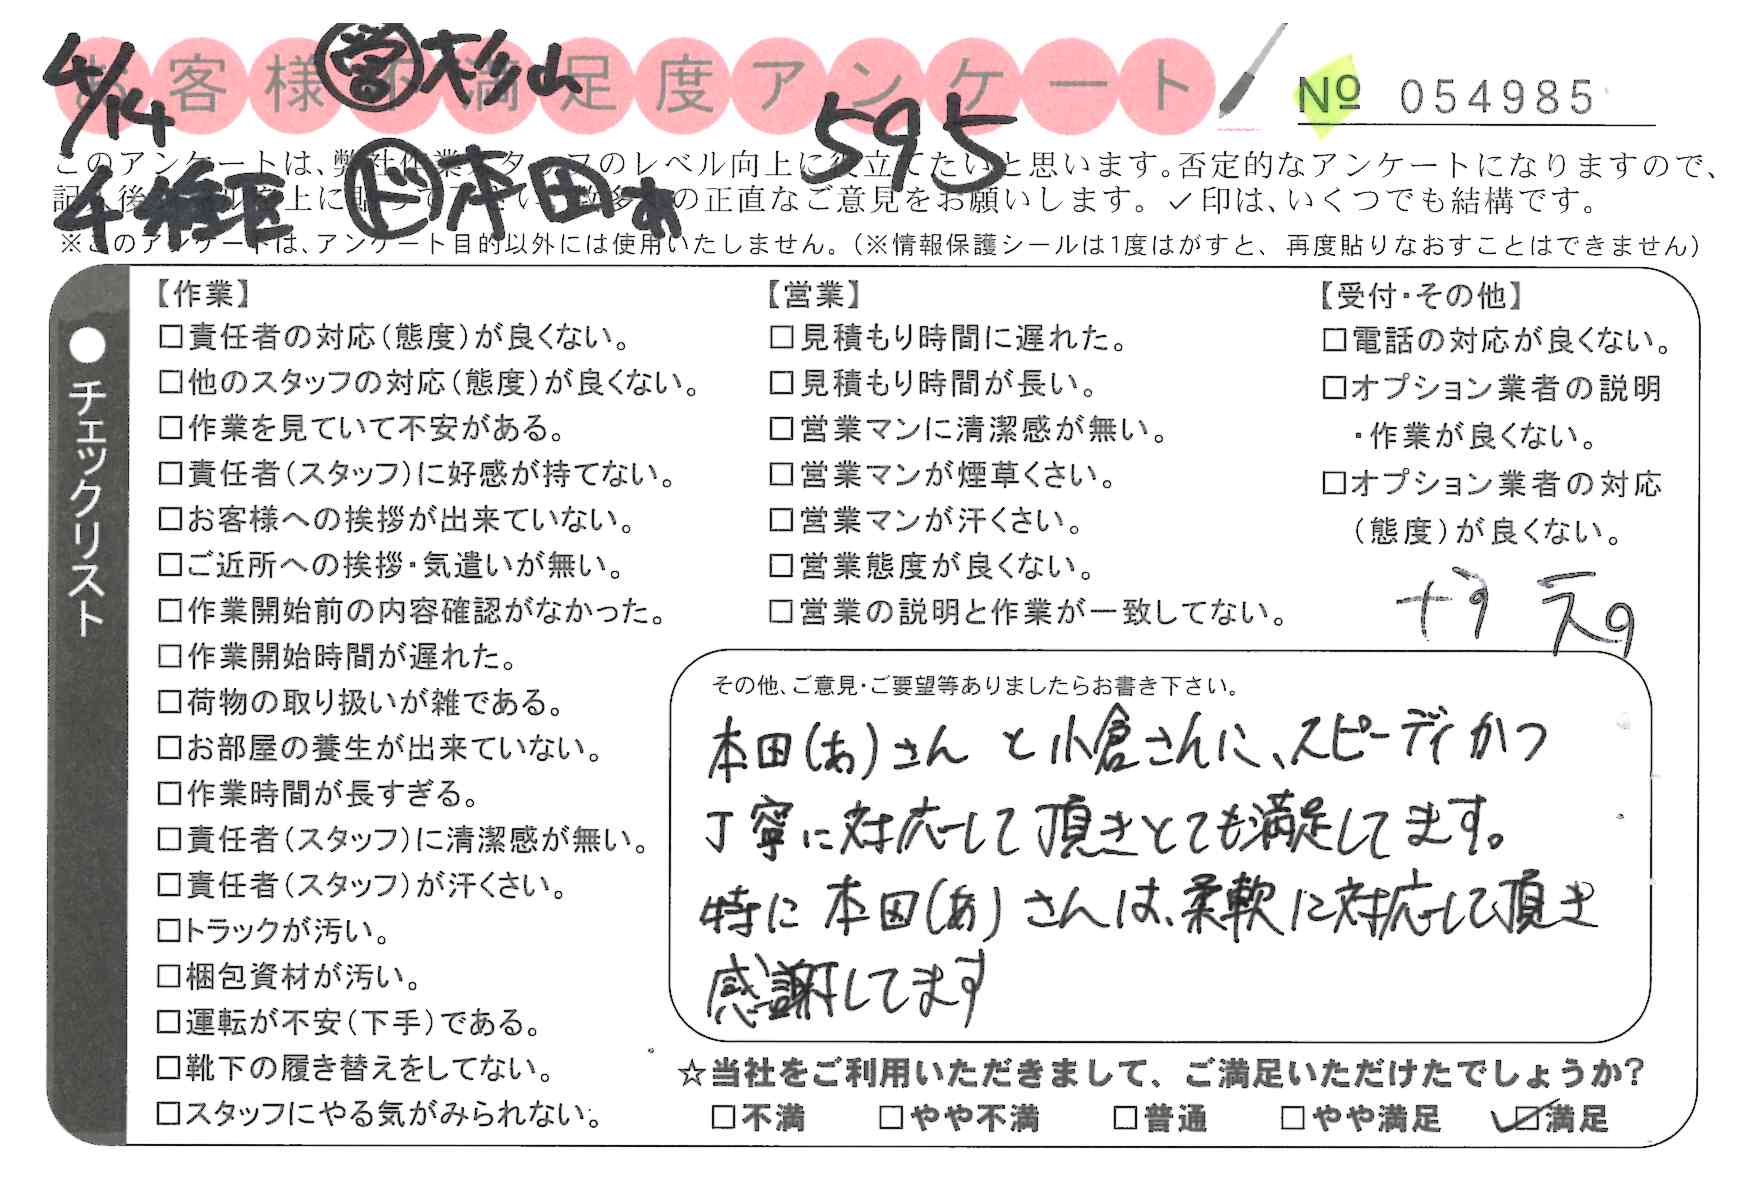 お客様不満足度アンケート
4/14 営 杉山
595
№ 054985
このアンケートは、弊社作業スタッフのレベル向上に役立てたいと思います。否定的なアンケートになりますので、
ド 本田あ
の正直なご意見をお願いします。✓印は、いくつでも結構です。
※このアンケートは、アンケート目的以外には使用いたしません。(※情報保護シールは1度はがすと、再度貼りなおすことはできません)
●チェックリスト
【作業】
□責任者の対応(態度)が良くない。
□他のスタッフの対応(態度)が良くない。
□作業を見ていて不安がある。
□責任者(スタッフ)に好感が持てない。
□お客様への挨拶が出来ていない。
□ご近所への挨拶・気遣いが無い。
□作業開始前の内容確認がなかった。
□作業開始時間が遅れた。
□荷物の取り扱いが雑である。
□お部屋の養生が出来ていない。
□作業時間が長すぎる。
□責任者(スタッフ)に清潔感が無い。
□責任者(スタッフ)が汗くさい。
□トラックが汚い。
□梱包資材が汚い。
□運転が不安(下手)である。
□靴下の履き替えをしてない。
□スタッフにやる気がみられない。
【営業】
□見積もり時間に遅れた。
□見積もり時間が長い。
□営業マンに清潔感が無い。
□営業マンが煙草くさい。
□営業マンが汗くさい。
□営業態度が良くない。
□営業の説明と作業が一致してない。
【受付・その他】
□電話の対応が良くない。
□オプション業者の説明
・作業が良くない。
□オプション業者の対応
(態度)が良くない。
その他、ご意見・ご要望等ありましたらお書き下さい。
本田(あ)さんと小倉さんに、スピーディかつ
丁寧に対応して頂きとても満足してます。
特に本田(あ)さんは、柔軟に対応して頂き
感謝してます
☆当社をご利用いただきまして、ご満足いただけたでしょうか?
□不満 □やや不満 □普通 □やや満足 ☑満足